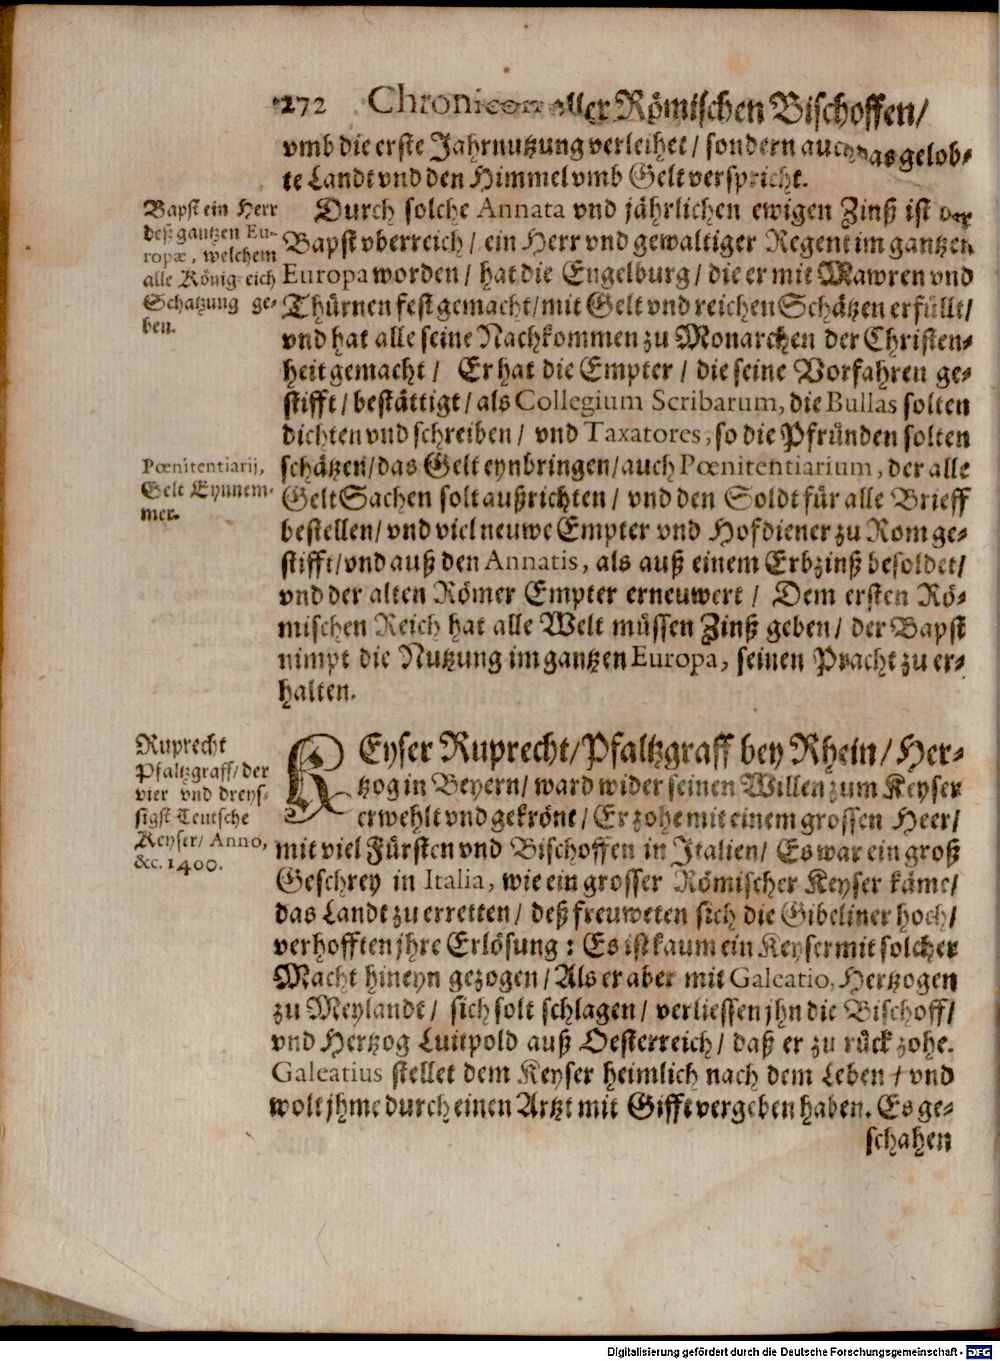 272 Chronicon aller Römischen Bischoffen/
vmb die erste Jahrnutzung verleihet/ sondern auch das gelob-
te Landt vnd den Himmel vmb Gelt verspricht.
Bapst ein Herr
deß gantzen Eu-
ropæ, welchem
alle Königreich
Schatzung ge-
ben.
Durch solche Annata vnd jährlichen ewigen Zinß ist der
Bapst vberreich/ ein Herr vnd gewaltiger Regent im gantzen
Europa worden/ hat die Engelburg/ die er mit Mawren vnd
Thürnen fest gemacht/ mit Gelt vnd reichen Schätzen erfüllt/
vnd hat alle seine Nachkommen zu Monarchen der Christen-
heit gemacht/ Er hat die Empter/ die seine Vorfahren ge-
stifft/ bestättigt/ als Collegium Scribarum, die Bullas solten
dichten vnd schreiben/ vnd Taxatores, so die Pfründen solten
Pœnitentiarij,
Gelt Eynnem-
mer.
schätzen/ das Gelt eynbringen/ auch Pœnitentiarium, der alle
Gelt Sachen solt außrichten/ vnd den Soldt für alle Brieff
bestellen/ vnd viel neuwe Empter vnd Hofdiener zu Rom ge-
stifft/ vnd auß den Annatis, als auß einem Erbzinß besoldet/
vnd der alten Römer Empter erneuwert/ Dem ersten Rö-
mischen Reich hat alle Welt müssen Zinß geben/ der Bapst
nimpt die Nutzung im gantzen Europa, seinen Pracht zu er-
halten.
Ruprecht
Pfaltzgraff/ der
vier vnd dreys-
sigst Teutsche
Keyser/ Anno,
&c. 1400.
KEyser Ruprecht/ Pfaltzgraff bey Rhein/ Her-
tzog in Beyern/ ward wider seinen Willen zum Keyser
erwehlt vnd gekrönt/ Er zohe mit einem grossen Heer/
mit viel Fürsten vnd Bischoffen in Italien/ Es war ein groß
Geschrey in Italia, wie ein grosser Römischer Keyser käme/
das Landt zu erretten/ deß freuweten sich die Gibeliner hoch/
verhofften jhre Erlösung: Es ist kaum ein Keyser mit solcher
Macht hineyn gezogen/ Als er aber mit Galeatio, Hertzogen
zu Meylandt/ sich solt schlagen/ verliessen jhn die Bischoff/
vnd Hertzog Luitpold auß Oesterreich/ daß er zu rück zohe.
Galeatius stellet dem Keyser heimlich nach dem Leben/ vnd
wolt jhme durch einen Artzt mit Gifft vergeben haben. Es ge-
schahen
Digitalisierung gefördert durch die Deutsche Forschungsgemeinschaft - DFG